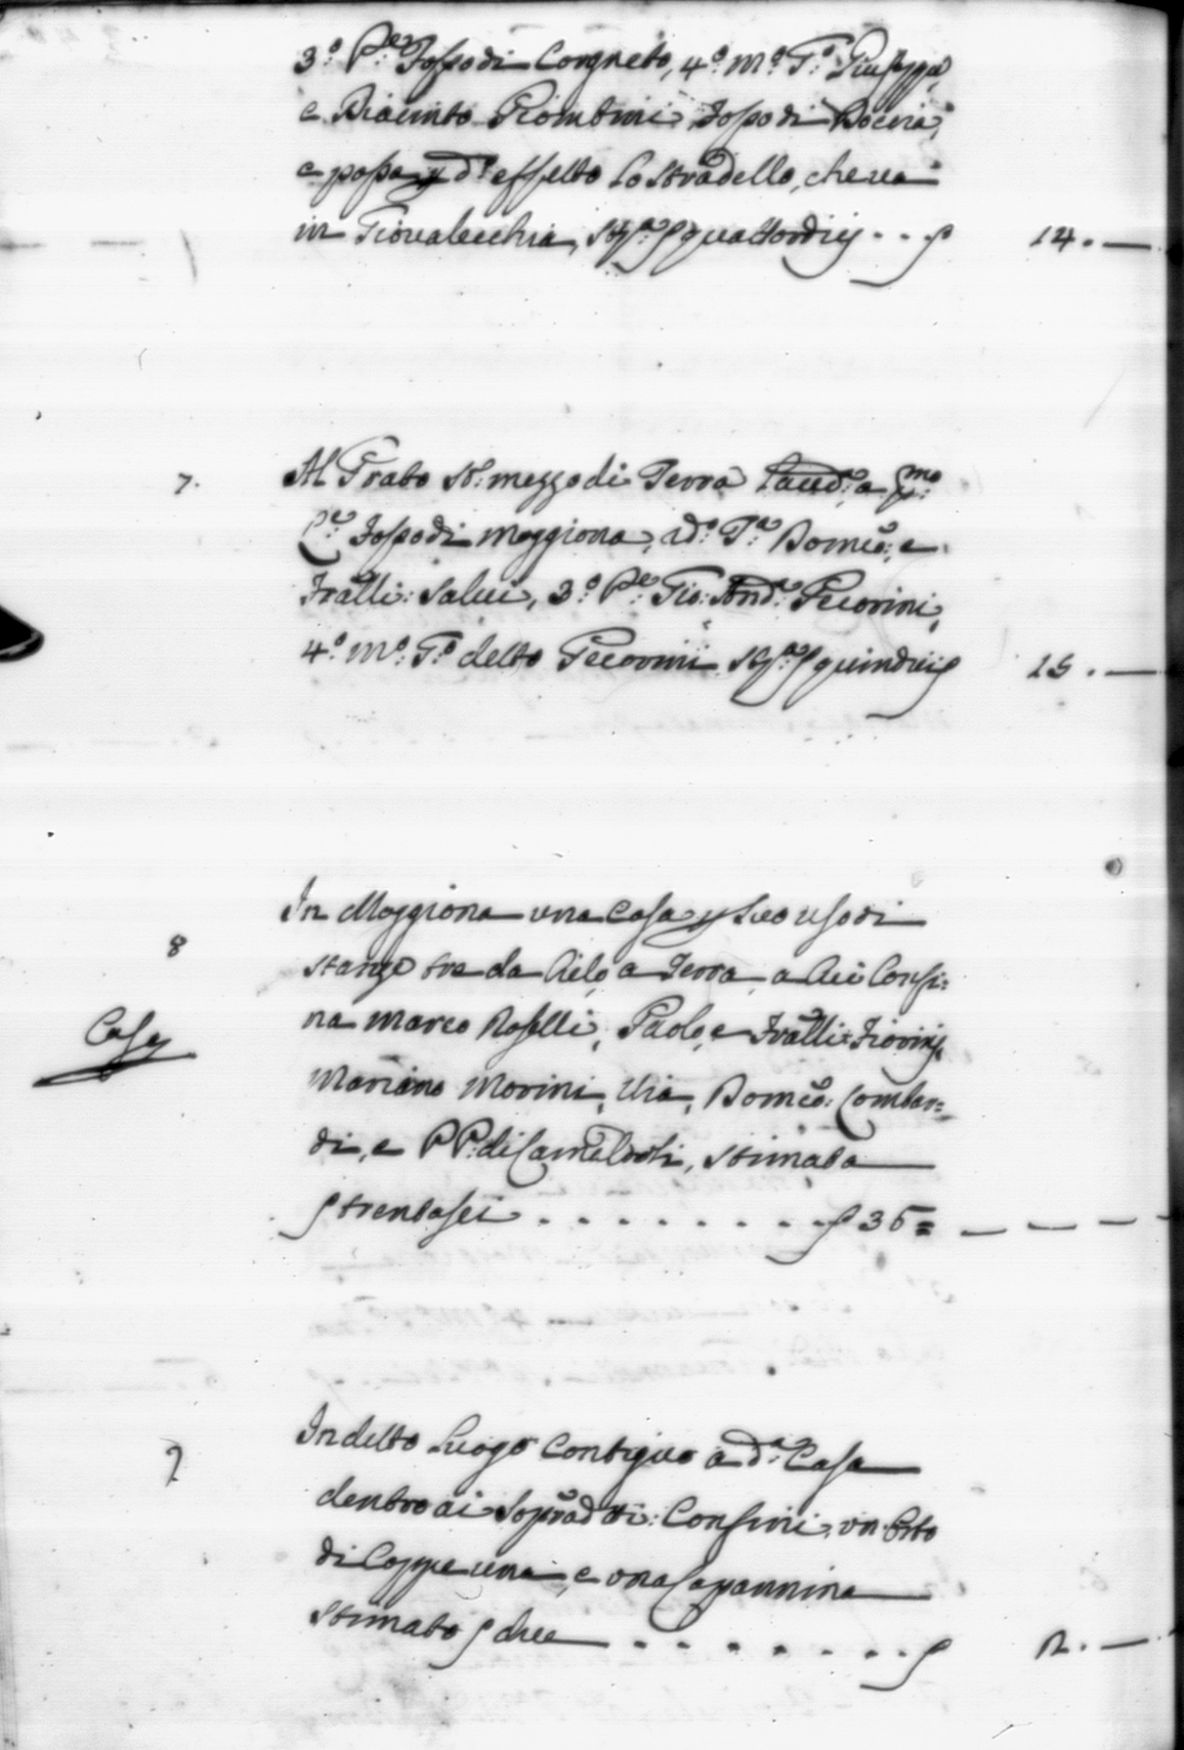 3.º P.e Fosso di Corgneto, 4.º M.º T.º Giuseppe,
e Giacinto Piombini, Fosso di Doccia,
e passa p d.º effetto lo Stradello, che va
in Piovalecchia, St.ta ∫ quattordici . . ∫ 14. —
7. Al Prato St: mezzo di Terra a p.mo
P.e Fosso di Moggiona, 2d.º T.a Domco: e
Fratlli: Salvi, 3.º P.e Gio: And.a Pecorini,
4.º M.º T.º detto Pecorini St.ta ∫ quindici ∫ 15. —
8 In Moggiona una Casa p suo uso di
stanze tre da Cielo a Terra a Cui Confi:
Case na Marco Roselli, Paolo, e Fratlli: Fiorini,
Mariano Morini, Via, Domco: Lombar=
di, e PP: di Camaldoli, stimata
∫ trentasei . . . . . . . . ∫ 36 = — — —
9 In detto Luogo Contiguo a d.a Casa
dentro ai Sopradtti: Confini, un Orto
di Coppe una, e una Capannina
stimato ∫ due — . . . . . . . ∫ 2. —